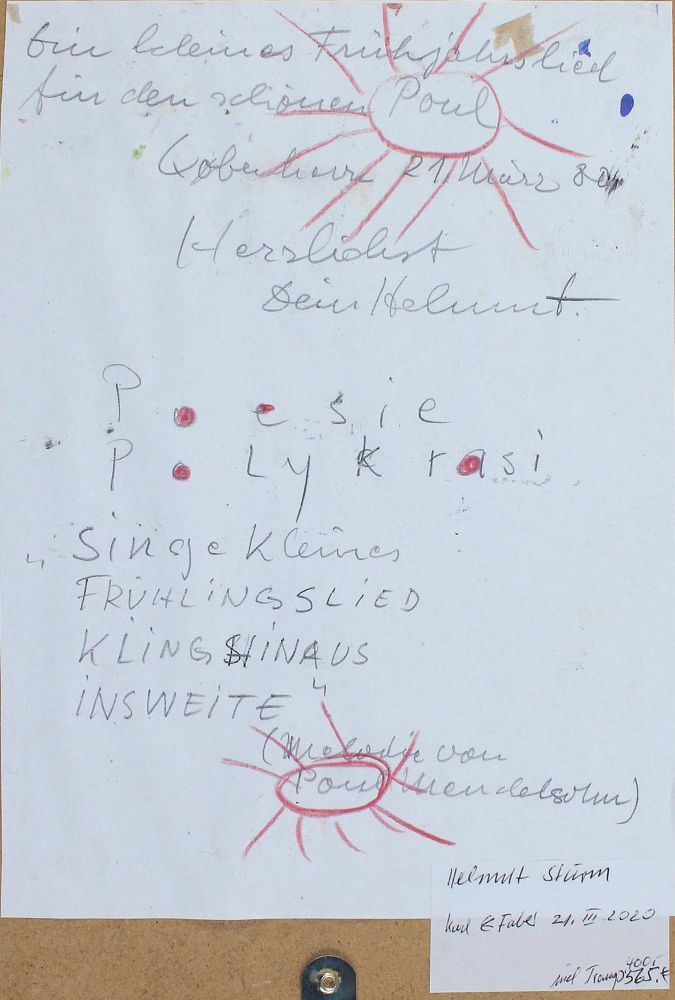 Ein kleines Frühjahrslied
für den schönen Poul
København 21. März 80
Herzlichst
Dein Helmut.
Poesie
PoLykrasi
„Singe Kleines
FRÜHLINGSLIED
KLING HINAUS
INSWEITE"
(Melodie von
Poul Mendelsohn)
Helmut Sturm
Karl & Faber 21. III. 2020
400,-
incl 565.€